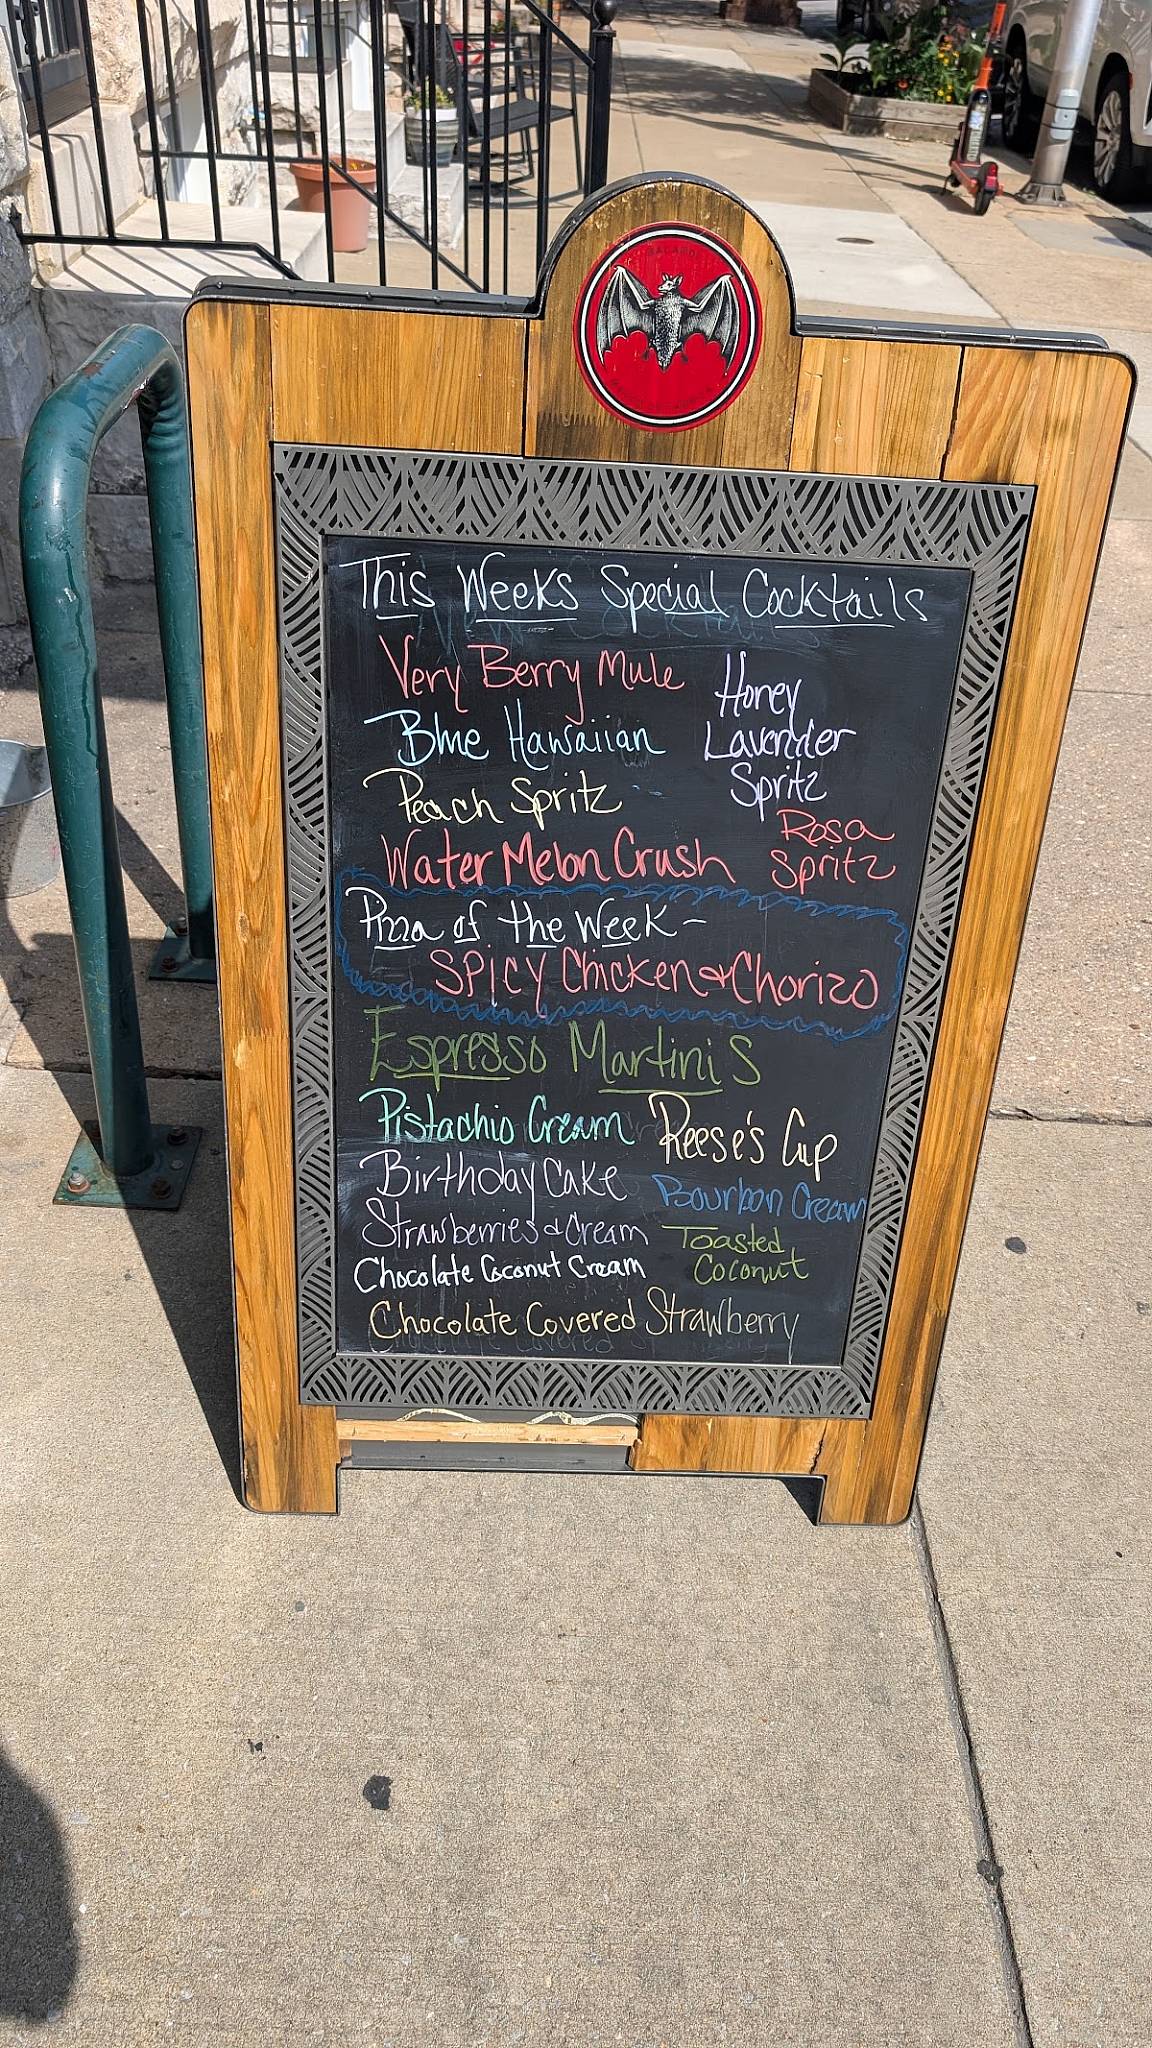 BACARDI
This Weeks Special Cocktails
Very Berry Mule
Blue Hawaiian
Peach Spritz
Water Melon Crush
Honey
Lavender
Spritz
Rosa
Spritz
Pizza of the Week -
SPICY Chicken & Chorizo
Espresso Martini S
Pistachio Cream
Birthday Cake
Strawberries & Cream
Chocolate Coconut Cream
Reese's Cup
Bourbon Cream
Toasted
Coconut
Chocolate Covered Strawberry